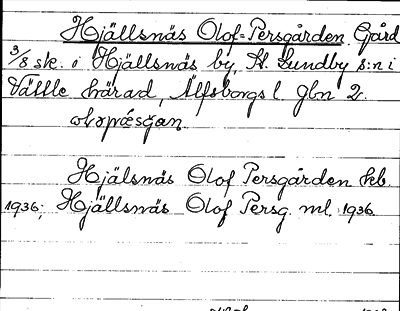 Hjällsnäs Olof-Persgården. Gård
3/8 sk. i Hjällsnäs by, St. Lundby s:n i
Vättle härad, Älfsborgs l. Gbn 2.
Hjälsnäs Olof Persgården kb.
1936; Hjällsnäs Olof Persg. ml. 1936.